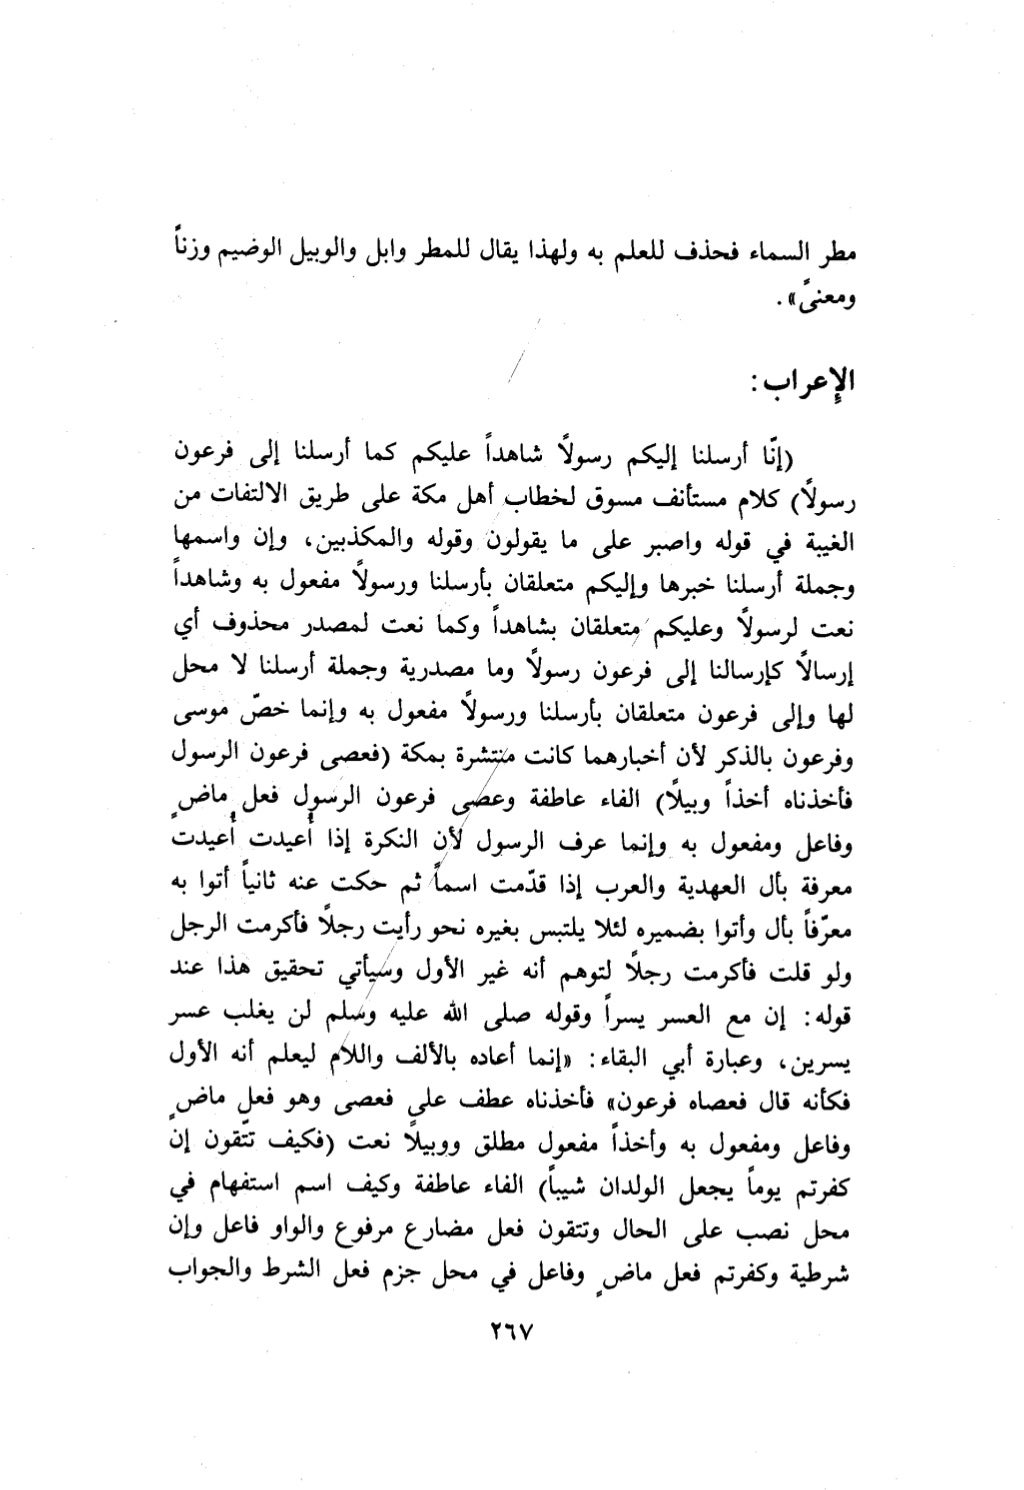 مطر السماء فحذف للعلم به ولهذا يقال للمطر وابل والوبيل الوضيم وزناً
ومعنىً» .
الإعراب :
(إنّا أرسلنا إليكم رسولاً شاهداً عليكم كما أرسلنا إلى فرعون
رسولاً) كلام مستأنف مسوق لخطاب أهل مكة على طريق الالتفات من
الغيبة في قوله واصبر على ما يقولون وقوله والمكذبين، وإن واسمها
وجملة أرسلنا خبرها وإليكم متعلقان بأرسلنا ورسولاً مفعول به وشاهداً
نعت لرسولاً وعليكم متعلقان بشاهداً وكما نعت لمصدر محذوف أي
إرسالاً كإرسالنا إلى فرعون رسولاً وما مصدرية وجملة أرسلنا لا محل
لها وإلى فرعون متعلقان بأرسلنا ورسولاً مفعول به وإنما خصّ موسى
وفرعون بالذكر لأن أخبارهما كانت منتشرة بمكة (فعصى فرعون الرسول
فأخذناه أخذاً وبيلاً) الفاء عاطفة وعصى فرعون الرسول فعل ماضٍ
وفاعل ومفعول به وإنما عرف الرسول لأن النكرة إذا أُعيدت أُعيدت
معرفة بأل العهدية والعرب إذا قدّمت اسماً ثم حكت عنه ثانياً أتوا به
معرّفاً بأل وأتوا بضميره لئلا يلتبس بغيره نحو رأيت رجلاً فأكرمت الرجل
ولو قلت فأكرمت رجلاً لتوهم أنه غير الأول وسيأتي تحقيق هذا عند
قوله: إن مع العسر يسراً وقوله صلى الله عليه وسلم لن يغلب عسر
يسرين، وعبارة أبي البقاء: «إنما أعاده بالألف واللام ليعلم أنه الأول
فكأنه قال فعصاه فرعون» فأخذناه عطف على فعصى وهو فعل ماضٍ
وفاعل ومفعول به وأخذاً مفعول مطلق ووبيلاً نعت (فكيف تتّقون إن
كفرتم يوماً يجعل الولدان شيباً) الفاء عاطفة وكيف اسم استفهام في
محل نصب على الحال وتتقون فعل مضارع مرفوع والواو فاعل وإن
شرطية وكفرتم فعل ماضٍ وفاعل في محل جزم فعل الشرط والجواب
٢٦٧